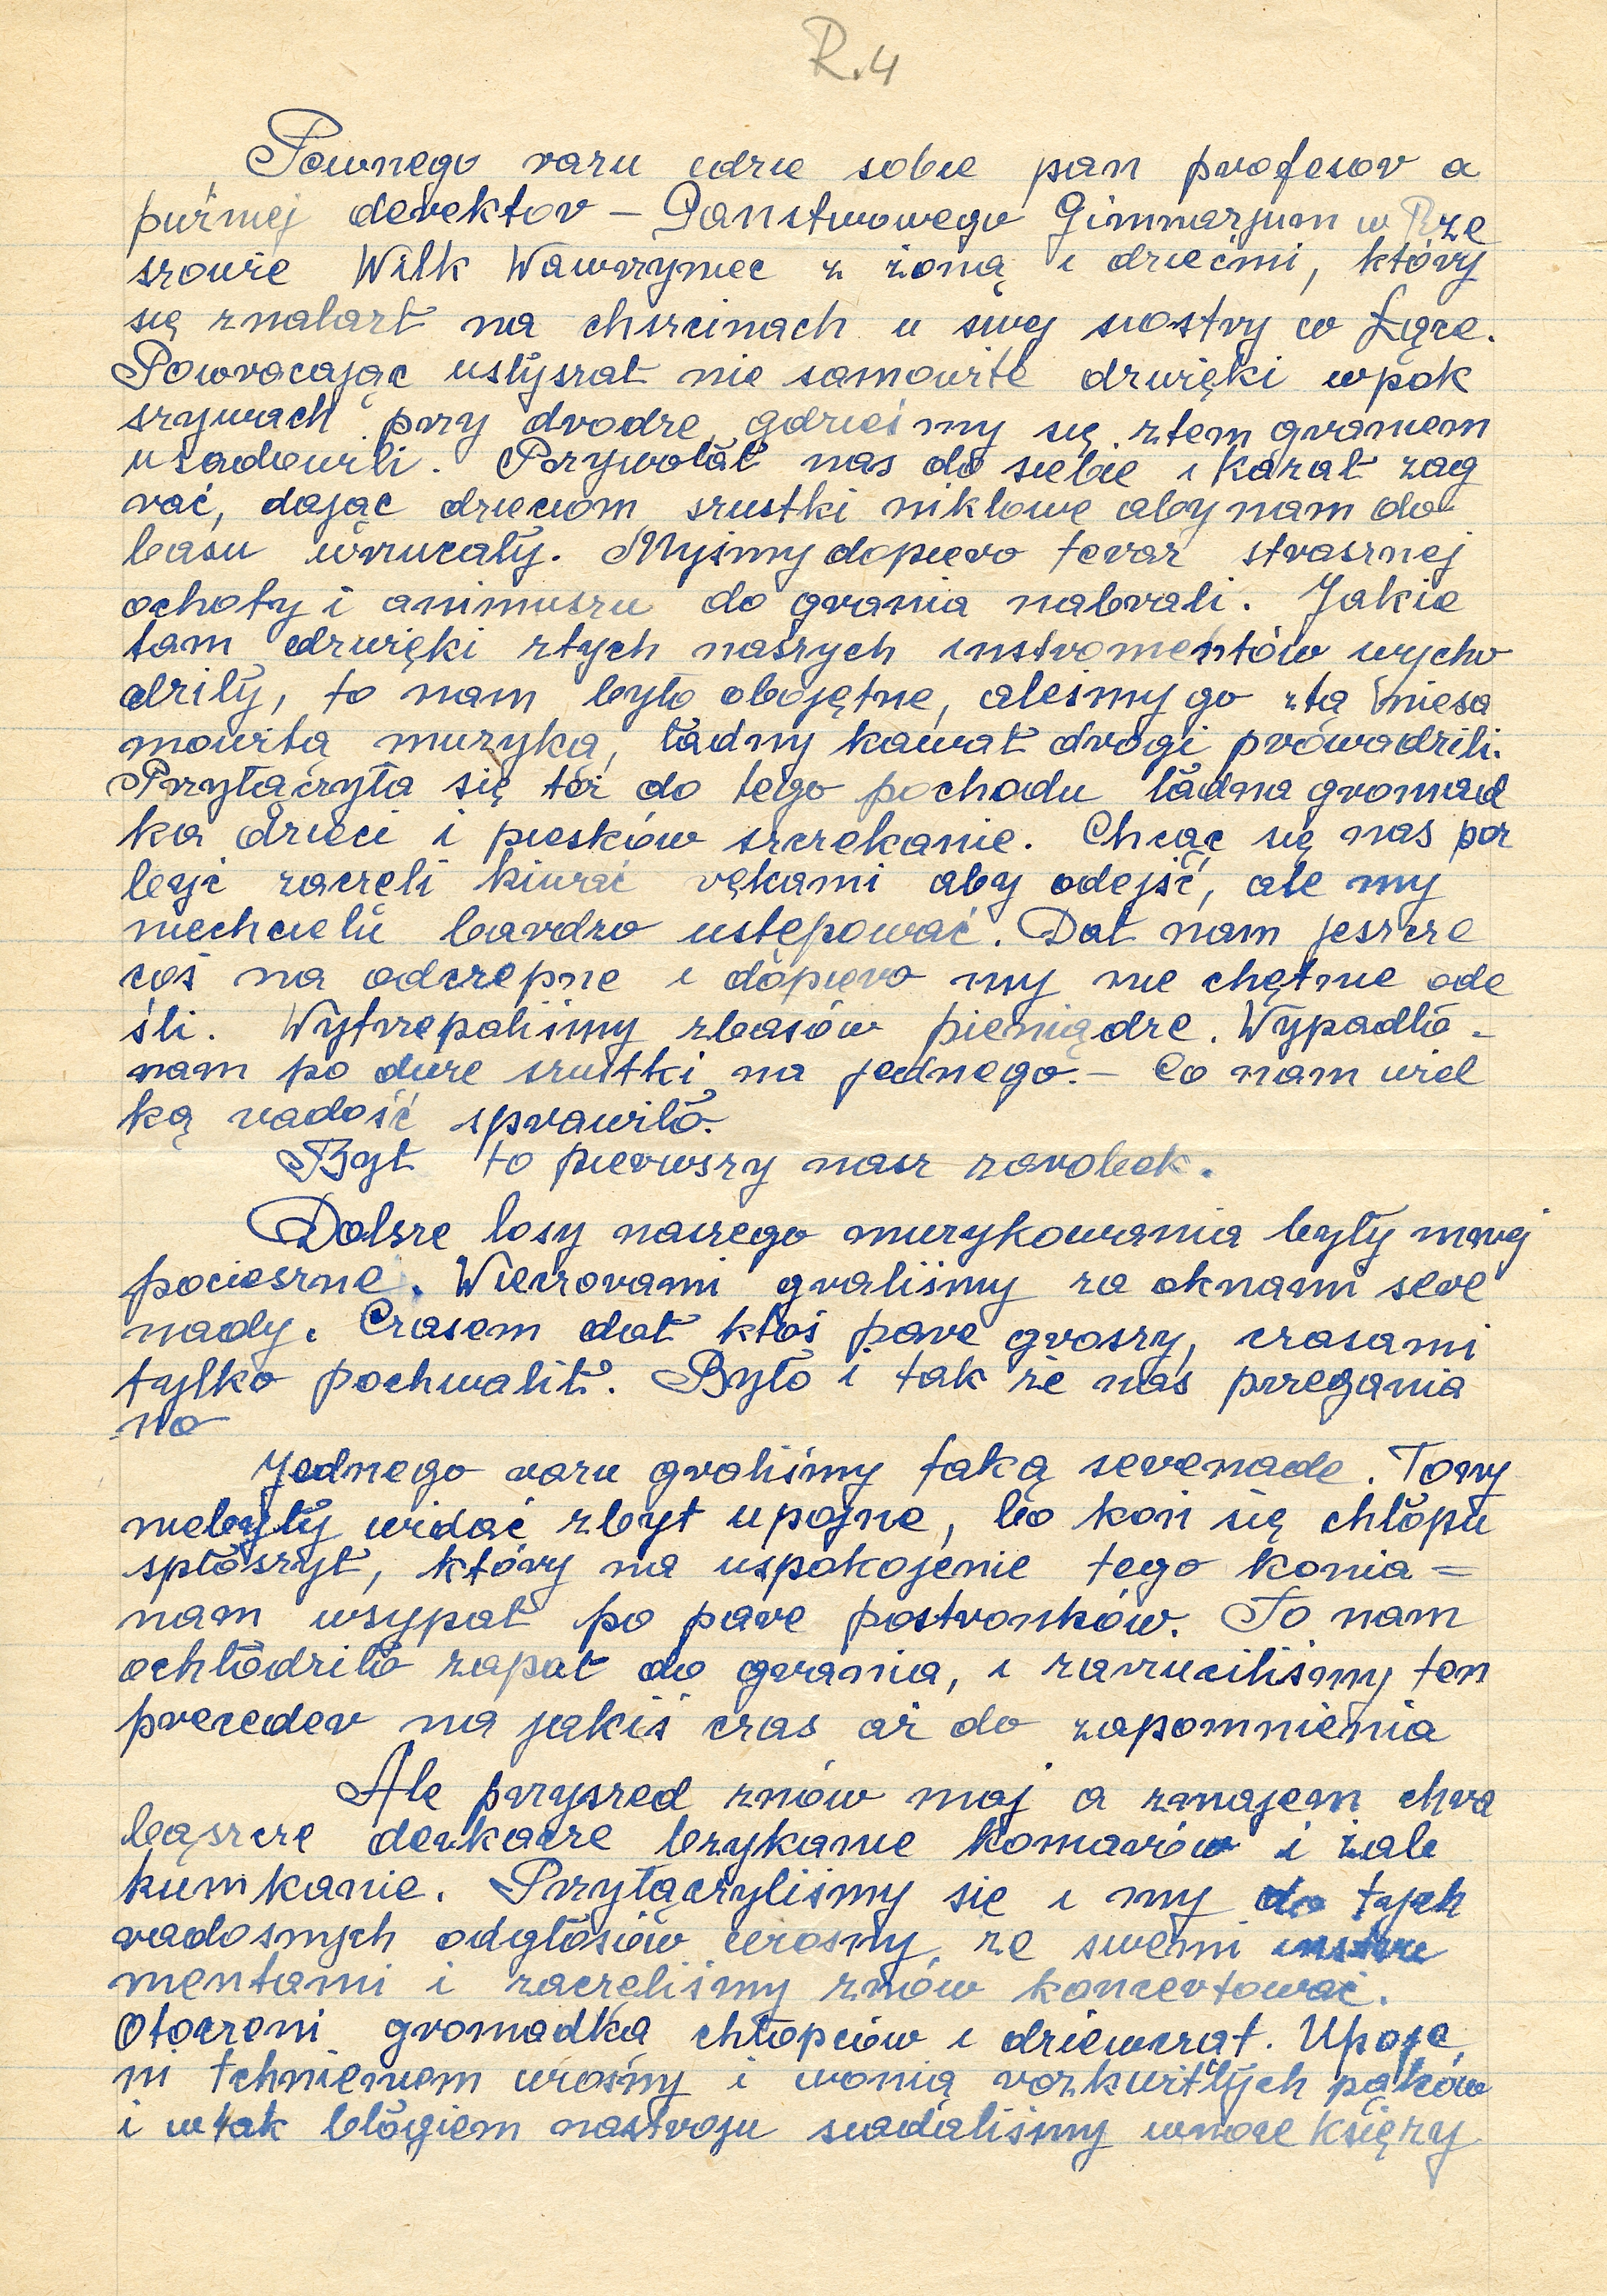 R.4
Pewnego razu idzie sobie pan profesor a
puźniej derektor – Panstwowego Gimnazjum w Rze
szowie Wilk Wawrzyniec z żoną i dziećmi, który
się znalazł na chszcinach u swej siostry w Łące.
Powracając usłyszał nie samowite dzwięki w pok
szywach przy drodze gdzieśmy się ztem graniem
usadowili. Przywołał nas do siebie i kazał zag
rać, dając dzieciom szustki niklowe aby nam do
basu wrzucały. Myśmy dopiero teraz strasznej
ochoty i animuszu do grania nabrali. Jakie
tam dzwięki ztych naszych instromentów wycho
dziły, to nam było obojętne, aleśmy go ztą niesa
mowitą muzyką, ładny kawał drogi prowadzili.
Przyłączyła się też do tego pochodu ładna gromad
ka dzieci i piesków szczekanie. Chcąc się nas poz
być zaczęli kiwać rękami aby odejść, ale my
niechcieli bardzo ustępować. Dał nam jeszcze
coś na odczepne i dopiero my nie chętnie ode
śli. Wytrzepaliśmy zbasów pieniądze. Wypadło –
nam po dwie szustki na jednego. – Co nam wiel
ką radość sprawiło.
Był to pierwszy nasz zarobek.
Dalsze losy naszego muzykowania były mniej
pocieszne. Wieczorami graliśmy za oknami sere
nady. Czasem dał ktoś pare groszy, czasami
tylko pochwalił. Było i tak że nas przegania
no
Jednego razu graliśmy taką serenade. Tony
niebyły widać zbyt upojne, bo koń się chłopu
spłoszył, który na uspokojenie tego konia =
nam wsypał po pare postronków. To nam
ochłodziło zapał do grania, i zarzuciliśmy ten
preceder na jakiś czas aż do zapomnienia
Ale przyszed znów maj a zmajem chra
bąszcze derkacze bzykanie komarów i żab
kumkanie. Przyłączyliśmy sie i my do tych
radosnych odgłosów wiosny, ze swemi instru
mentami i zaczęliśmy znów koncertować.
Otoczeni gromadką chłopców i dziewcząt. Upoje
ni tchnieniem wiosny i wonią rozkwitłych pąków
i w tak błogiem nastroju siadaliśmy wnoce księży